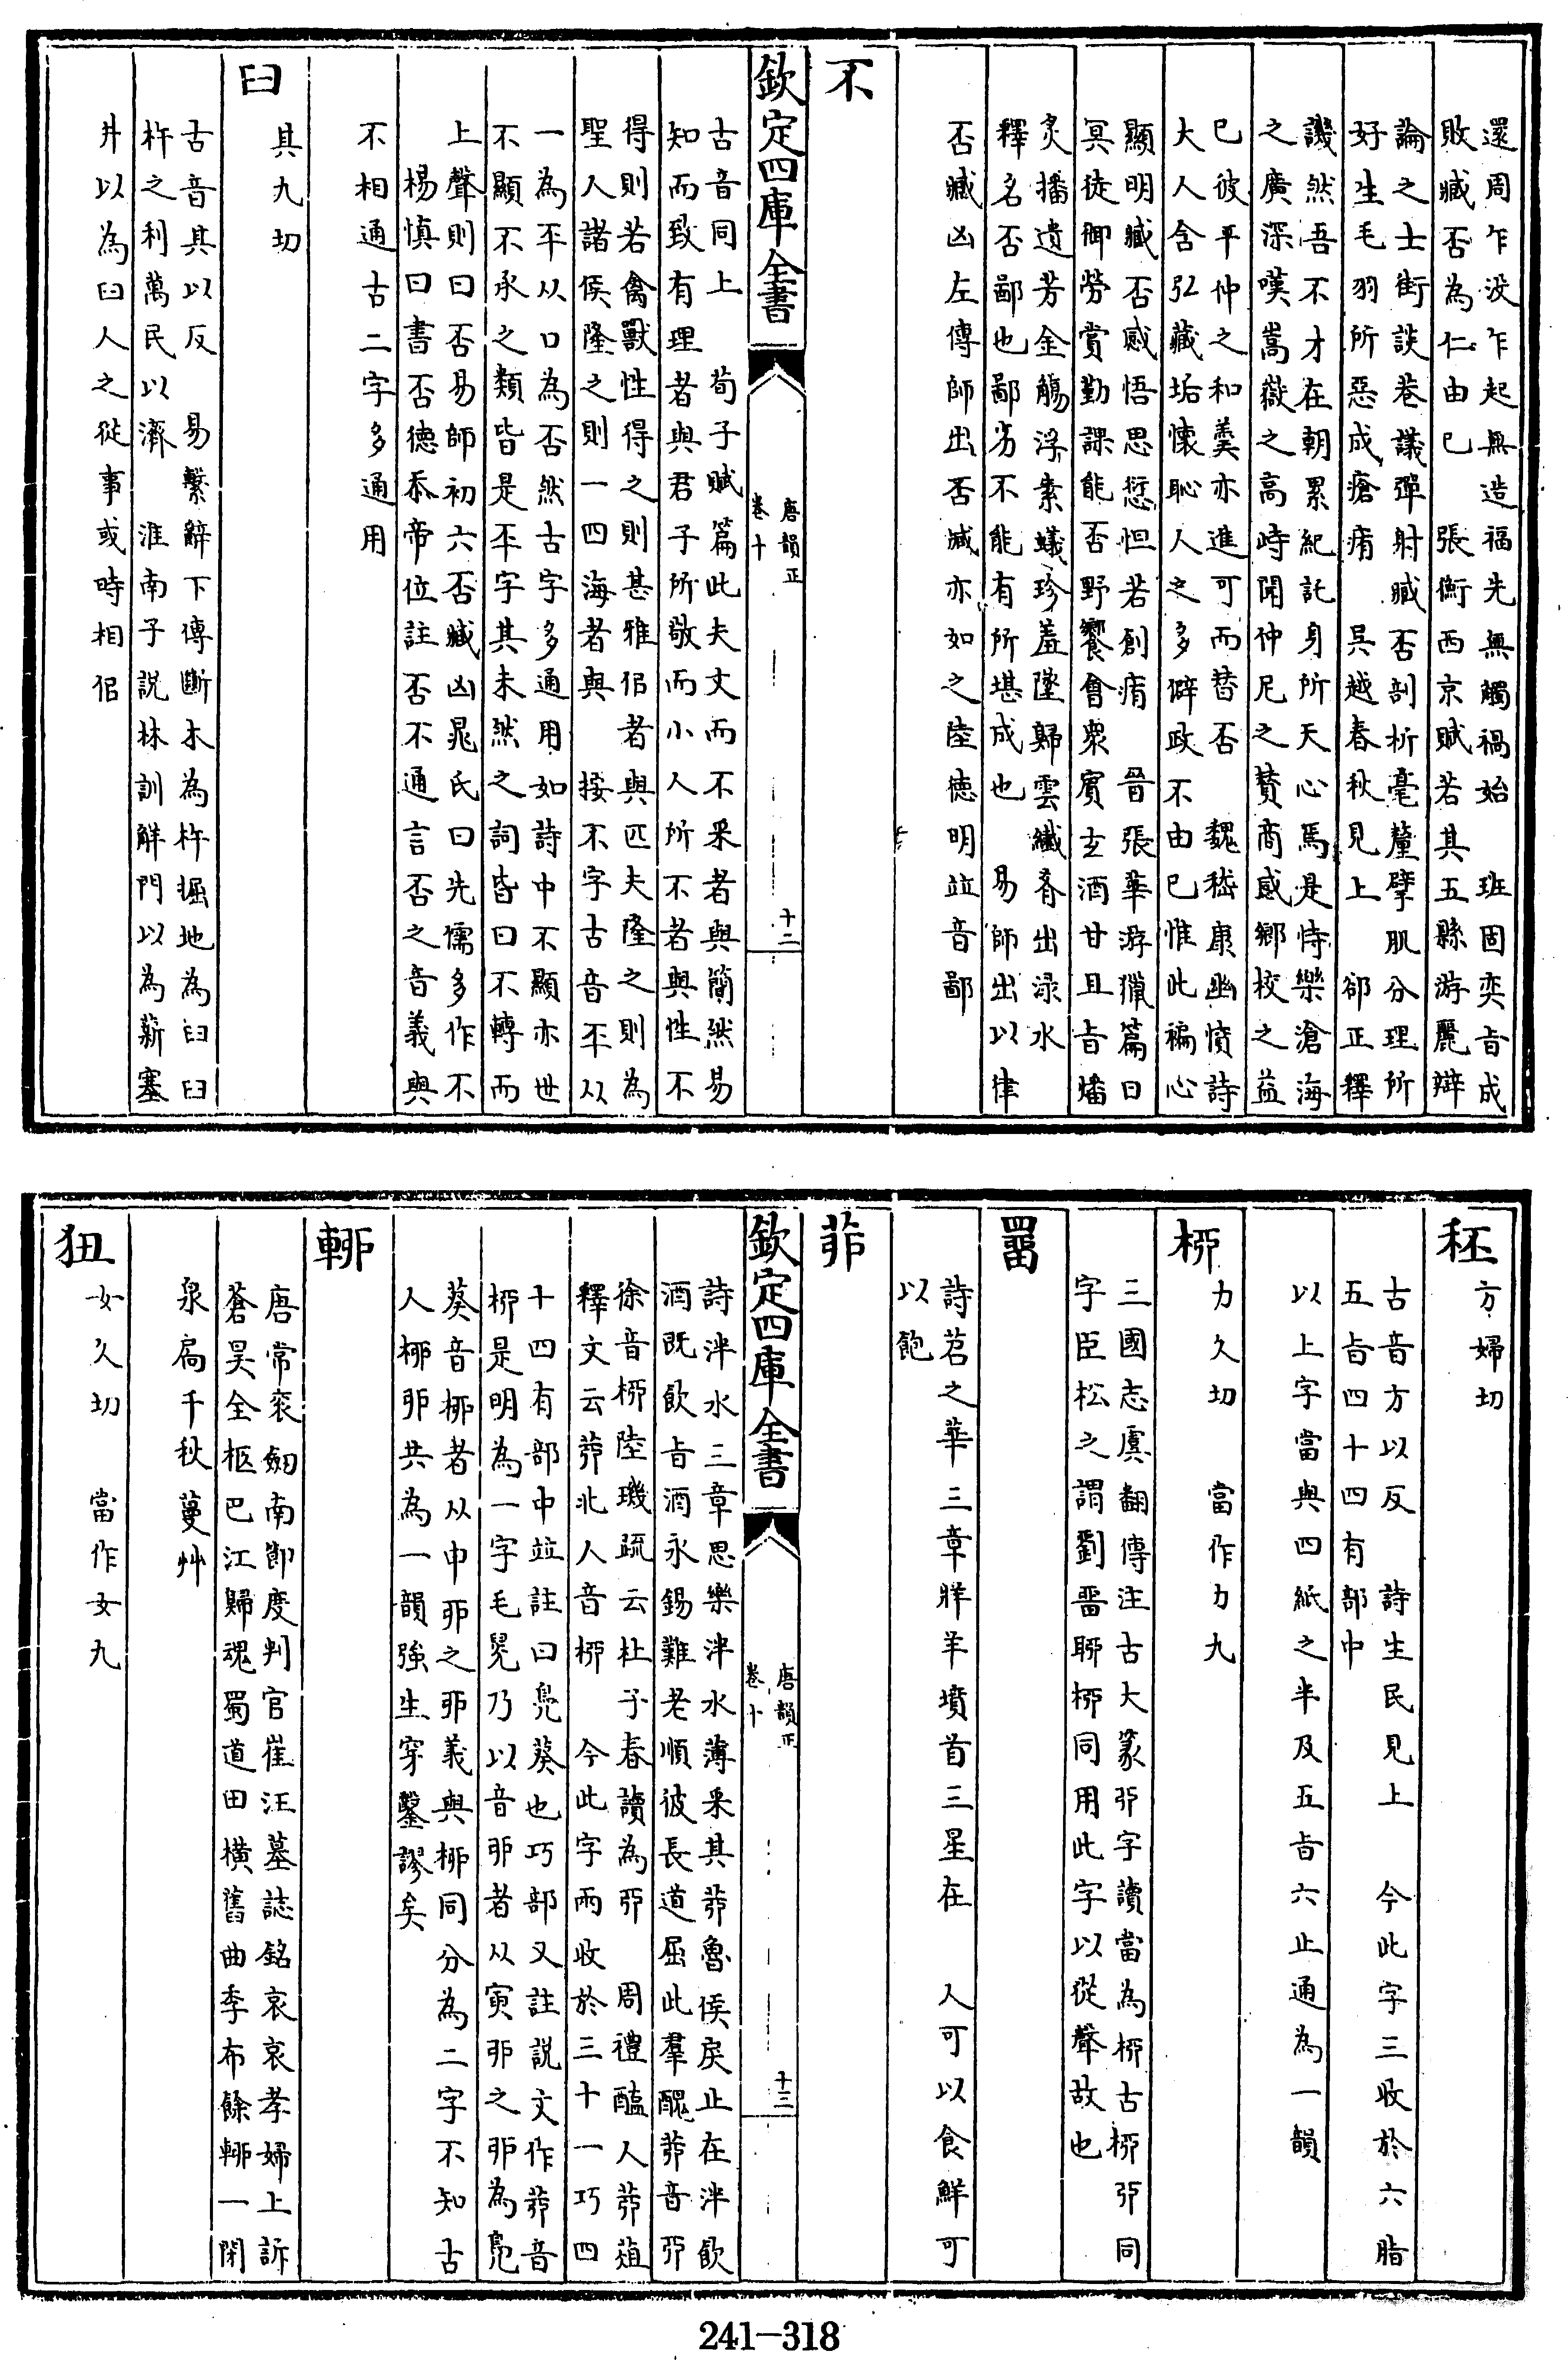 還周乍没乍起無造福先無觸禍始　班固奕旨成
敗臧否為仁由己　張衡西京賦若其五縣游麗辯
論之士街談巷議彈射臧否剖析毫釐擘肌分理所
好生毛羽所惡成瘡痏　吳越春秋見上　郤正釋
譏然吾不才在朝累紀託身所天心焉是恃樂滄海
之廣深嘆嵩嶽之高峙聞仲尼之贊商感鄉校之益
已彼平仲之和羹亦進可而替否　魏嵇康幽憤詩
大人含弘藏垢懷恥人之多僻政不由己惟此褊心
顯明臧否感悟思愆怛若創痏　晉張華游獵篇曰
冥徒御勞賞勤課能否野饗會衆賓玄酒甘且旨燔
炙播遺芳金觴浮素蟻珍羞墜歸雲纖肴出淥水
釋名否鄙也鄙劣不能有所堪成也　易師出以律
否臧凶左傳師出否臧亦如之陸德明竝音鄙
不
欽定四庫全書
唐韻正
卷十
十二
古音同上　荀子賦篇此夫文而不采者與簡然易
知而致有理者與君子所敬而小人所不者與性不
得則若禽獸性得之則甚雅佀者與匹夫隆之則為
聖人諸侯隆之則一四海者與　按不字古音丕以
一為不以口為否然古字多通用如詩中不顯亦世
不顯不承之類皆是丕字其未然之詞皆曰不轉而
上聲則曰否易師初六否臧凶晁氏曰先儒多作不
楊慎曰書否德忝帝位註否不通言否之音義與
不相通古二字多通用
臼
其九切
古音其以反　易繫辭下傳斷木為杵掘地為臼臼
杵之利萬民以濟　淮南子説林訓觧門以為薪塞
井以為臼人之從事或時相佀
秠
方婦切
古音方以反　詩生民見上　今此字三收於六脂
五旨四十四有部中
以上字當與四紙之半及五旨六止通為一韻
桺
力久切　當作力九
三國志虞翻傳注古大篆丣字讀當為桺古桺丣同
字臣松之謂劉畱聊桺同用此字以從聲故也
罶
詩苕之華三章牂羊墳首三星在　人可以食鮮可
以飽
茆
欽定四庫全書
唐韻正
卷十
十三
詩泮水三章思樂泮水薄采其茆魯侯戾止在泮飲
酒既飲旨酒永錫難老順彼長道屈此羣醜茆音丣
徐音桺陸璣疏云杜子春讀為丣　周禮醢人茆菹
釋文云茆北人音桺　今此字兩收於三十一巧四
十四有部中竝註曰鳧葵也巧部又註説文作茆音
桺是明為一字毛晃乃以音丣者從寅丣之丣為鳧
葵音桺者从申丣之丣義與桺同分為二字不知古
人桺丣共為一韻強生穿鑿謬矣
輀
唐常袞劒南節度判官崔汪墓誌銘哀哀孝婦上訴
蒼昊全柩巴江歸魂蜀道田橫舊曲季布餘輀一閉
泉扃千秋蔓艸
狃
女久切　當作女九
241—318